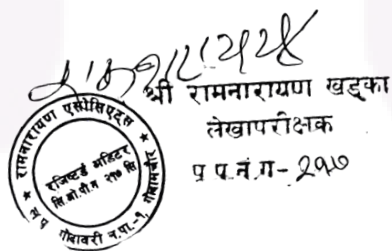 श्री रामनारायण खड्का
लेखापरीक्षक
प्र.प.नं.ग- २१७
रामनारायण एसोसिएट्स
रजिष्टर्ड अडिटर
सि.ओ.पी.नं. २१७ सि
गोदावरी न.पा.-१,